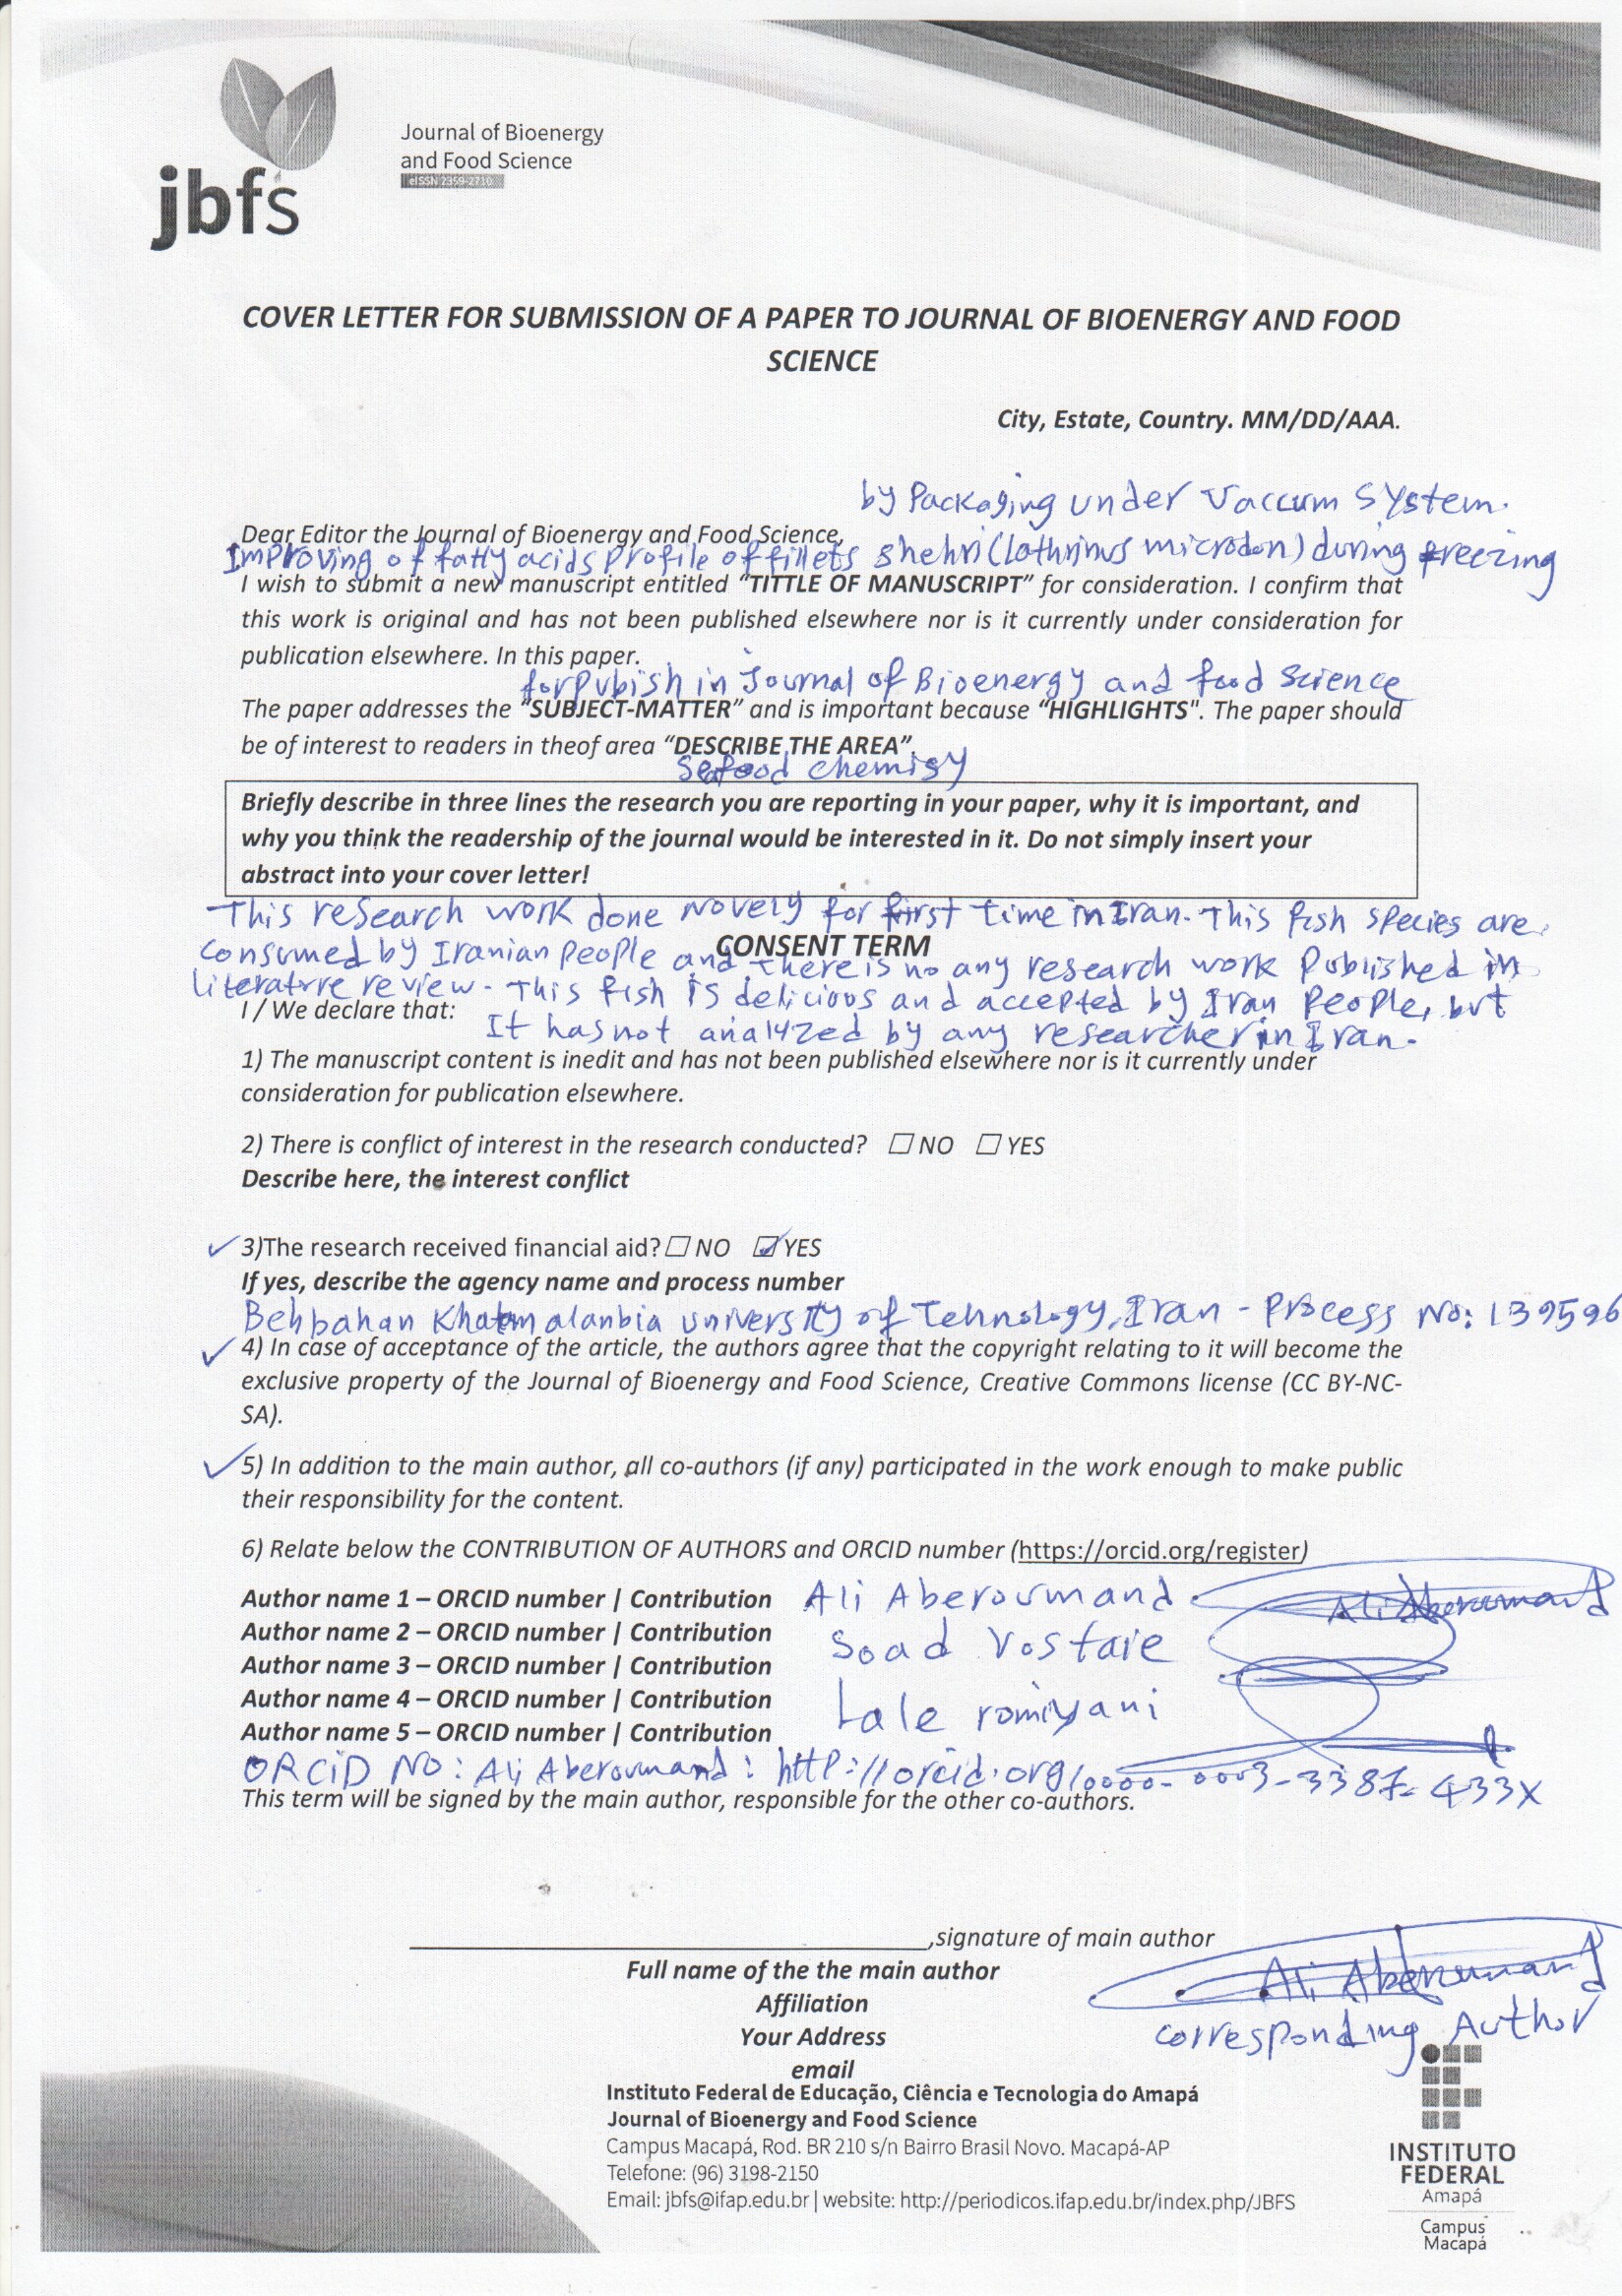 jbfs
Journal of Bioenergy
and Food Science
eISSN 2359-2710
COVER LETTER FOR SUBMISSION OF A PAPER TO JOURNAL OF BIOENERGY AND FOOD
SCIENCE
City, Estate, Country. MM/DD/AAA.
by Packaging under Vaccum System.
Dear Editor the Journal of Bioenergy and Food Science,
Improving of fatty acids Profile of fillets shehri (lathrinus microdon) during freezing
I wish to submit a new manuscript entitled “TITTLE OF MANUSCRIPT” for consideration. I confirm that
this work is original and has not been published elsewhere nor is it currently under consideration for
publication elsewhere. In this paper.
for pubish in Journal of Bioenergy and food Science
The paper addresses the “SUBJECT-MATTER” and is important because “HIGHLIGHTS". The paper should
be of interest to readers in theof area “DESCRIBE THE AREA”.
Seafood chemisy
Briefly describe in three lines the research you are reporting in your paper, why it is important, and
why you think the readership of the journal would be interested in it. Do not simply insert your
abstract into your cover letter!
This research work done Novely for first time in Iran. This fish species are
CONSENT TERM
consumed by Iranian people and there is no any research work Published in
literatrre review. This fish is delicious and accepted by Iran People, but
I / We declare that:
It has not analyzed by any researcher in Iran.
1) The manuscript content is inedit and has not been published elsewhere nor is it currently under
consideration for publication elsewhere.
2) There is conflict of interest in the research conducted? ☐ NO ☐ YES
Describe here, the interest conflict
✓ 3)The research received financial aid? ☐ NO ☑ YES
If yes, describe the agency name and process number
Behbahan Khatam alanbia university of Tehnology, Iran - Process No: 139596
✓ 4) In case of acceptance of the article, the authors agree that the copyright relating to it will become the
exclusive property of the Journal of Bioenergy and Food Science, Creative Commons license (CC BY-NC-
SA).
✓ 5) In addition to the main author, all co-authors (if any) participated in the work enough to make public
their responsibility for the content.
6) Relate below the CONTRIBUTION OF AUTHORS and ORCID number (https://orcid.org/register)
Author name 1 – ORCID number | Contribution Ali Aberoumand Ali Aberoumand
Author name 2 – ORCID number | Contribution Soad Vostare
Author name 3 – ORCID number | Contribution
Author name 4 – ORCID number | Contribution Lale romiyani
Author name 5 – ORCID number | Contribution
ORCID NO: Ali Aberoumand: http://orcid.org/0000-0003-3387-433X
This term will be signed by the main author, responsible for the other co-authors.
,signature of main author
Full name of the the main author
Ali Aberoumand
Affiliation
Your Address
corresponding Author
email
Instituto Federal de Educação, Ciência e Tecnologia do Amapá
Journal of Bioenergy and Food Science
Campus Macapá, Rod. BR 210 s/n Bairro Brasil Novo. Macapá-AP
Telefone: (96) 3198-2150
Email: jbfs@ifap.edu.br | website: http://periodicos.ifap.edu.br/index.php/JBFS
INSTITUTO
FEDERAL
Amapá
Campus
Macapá